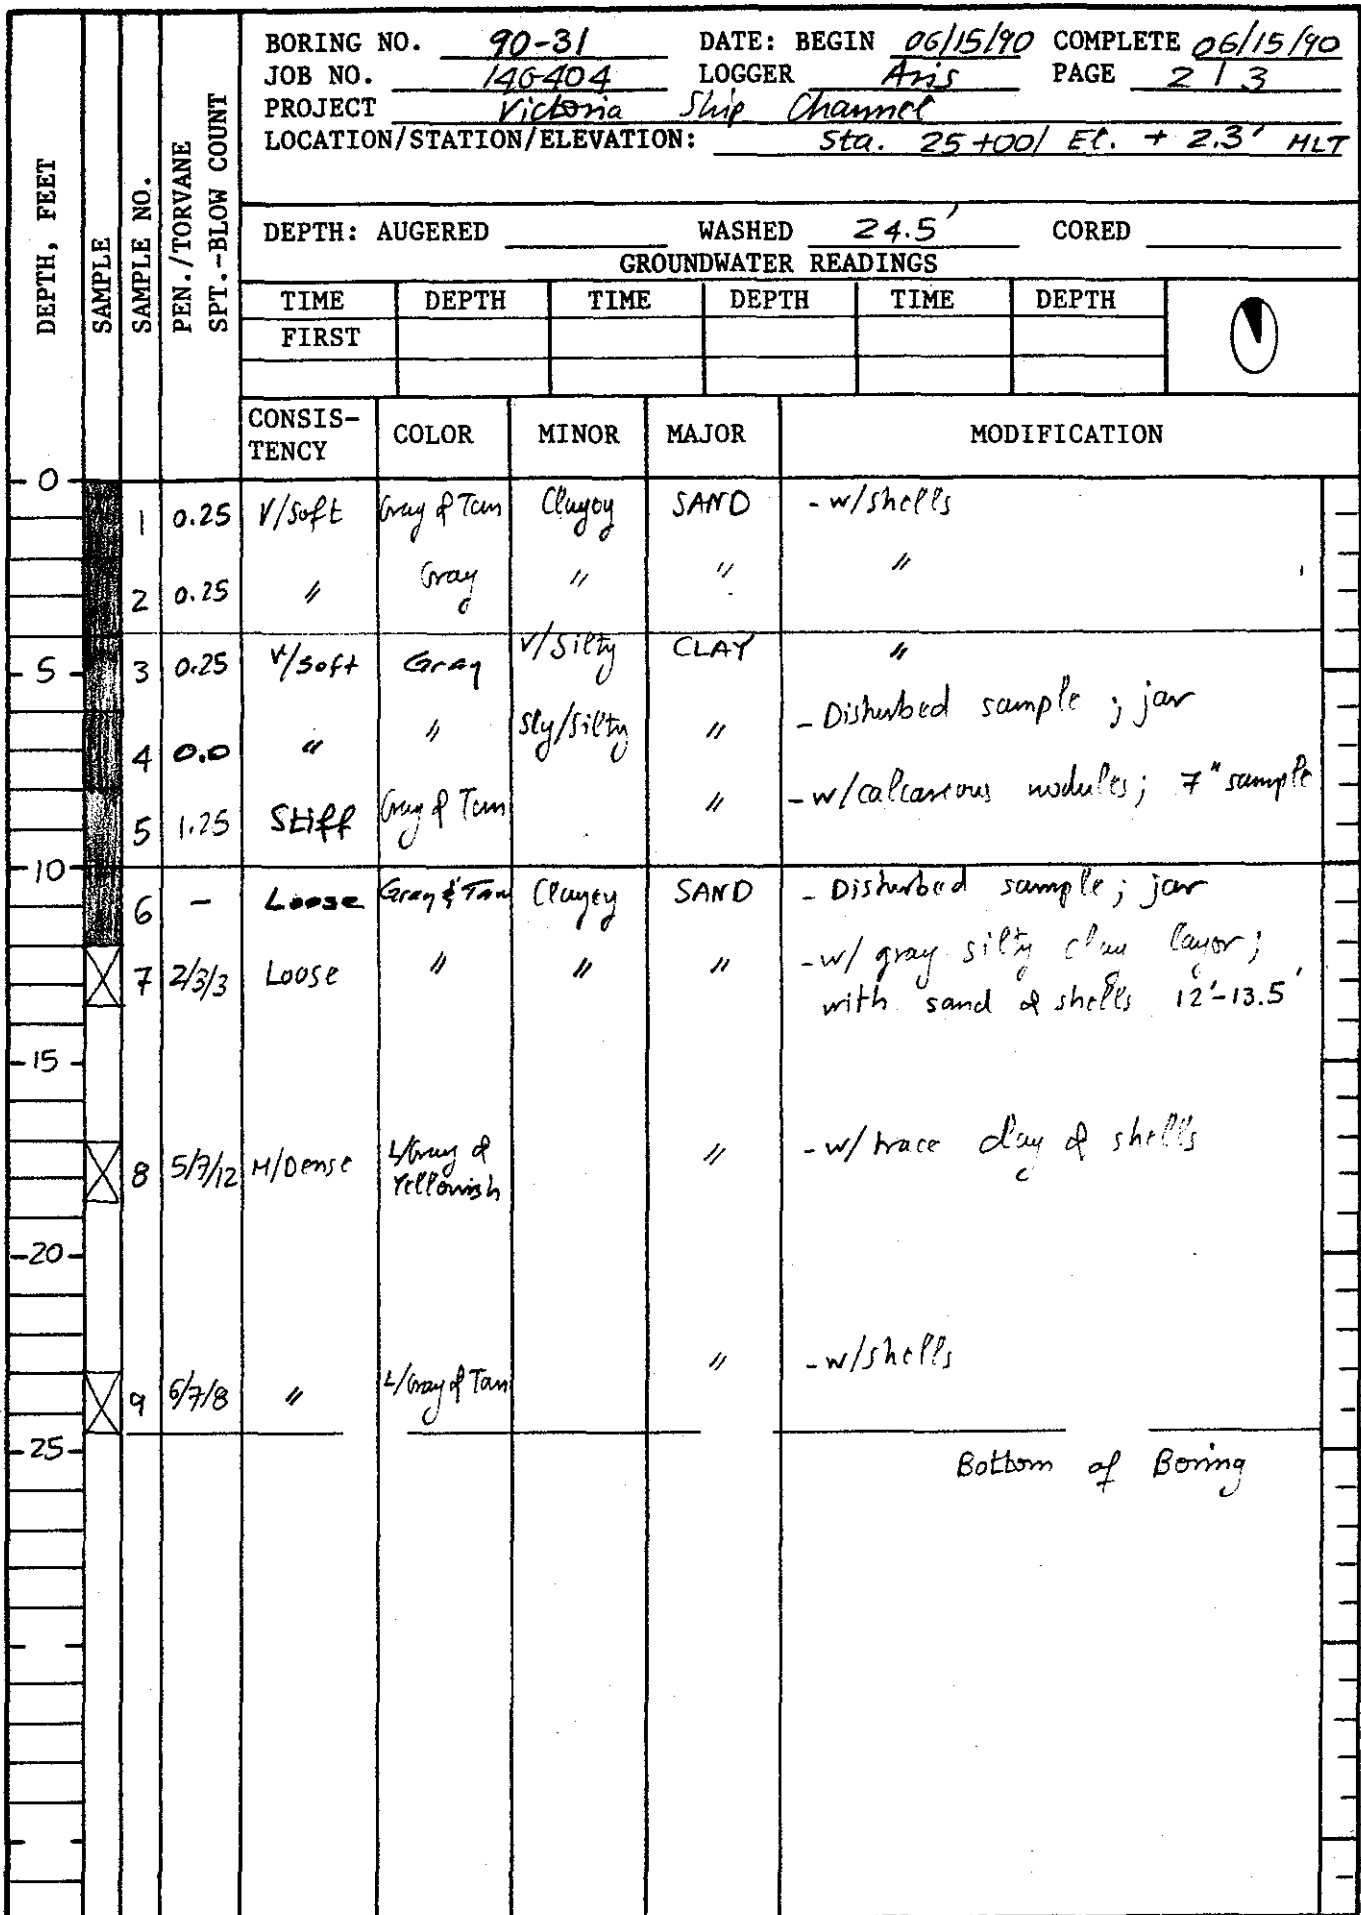 BORING NO. 90-31 DATE: BEGIN 06/15/90 COMPLETE 06/15/90
JOB NO. 140-404 LOGGER Aris PAGE 2 / 3
PROJECT Victoria Ship Channel
LOCATION/STATION/ELEVATION: Sta. 25+00/ El. + 2.3' MLT
DEPTH, FEET
SAMPLE
SAMPLE NO.
PEN./TORVANE
SPT.-BLOW COUNT
DEPTH: AUGERED WASHED 24.5' CORED
GROUNDWATER READINGS
TIME DEPTH TIME DEPTH TIME DEPTH
FIRST
CONSIS-
TENCY COLOR MINOR MAJOR MODIFICATION
0
1 0.25 V/Soft Gray & Tan Clayey SAND - w/shells
2 0.25 " Gray " " "
5 3 0.25 V/soft Gray V/Silty CLAY "
4 0.0 " " Sly/Silty " - Disturbed sample ; jar
5 1.25 Stiff Gray & Tan " - w/calcareous nodules; 7" sample
10
6 - Loose Gray & Tan Clayey SAND - Disturbed sample; jar
7 2/3/3 Loose " " " - w/ gray silty clay layer;
with sand & shells 12'-13.5'
15
8 5/7/12 M/Dense L/Gray &
Yellowish " - w/ trace clay & shells
20
9 6/7/8 " L/Gray & Tan " - w/shells
25
Bottom of Boring